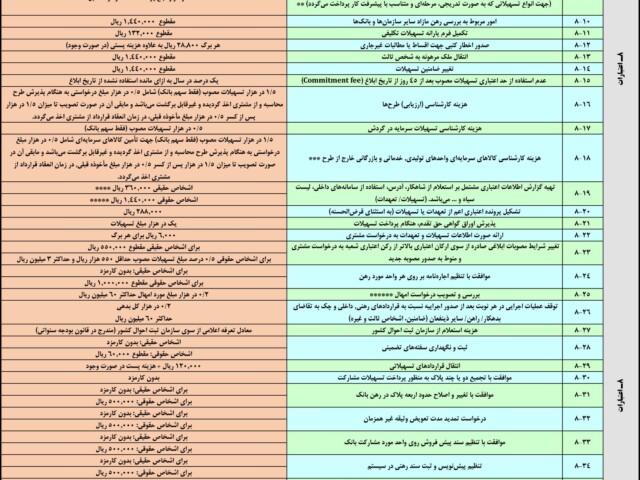 (جهت انواع تسهیلاتی که به صورت تدریجی، مرحله‌ای و متناسب با پیشرفت کار پرداخت می‌گردد) **
۸-۱۰ امور مربوط به بررسی رهن مازاد سایر سازمان‌ها و بانک‌ها مقطوع ۱,۴۴۰,۰۰۰ ریال
۸-۱۱ تکمیل فرم یارانه تسهیلات تکلیفی مقطوع ۱۴۴,۰۰۰ ریال
۸-۱۲ صدور اخطار کتبی جهت اقساط یا مطالبات غیرجاری هر برگ ۲۸,۸۰۰ ریال به علاوه هزینه پستی (در صورت وجود)
۸-۱۳ انتقال ملک مرهونه به شخص ثالث مقطوع ۱,۴۴۰,۰۰۰ ریال
۸-۱۴ تغییر ضامنین تسهیلات مقطوع ۱,۴۴۰,۰۰۰ ریال
۸-۱۵ عدم استفاده از حد اعتباری تسهیلات مصوب بعد از ۴۵ روز از تاریخ ابلاغ (Commitment fee) یک درصد در سال به ازای مانده استفاده نشده از تاریخ ابلاغ
۸-۱۶ هزینه کارشناسی (ارزیابی) طرح‌ها
۱/۵ در هزار تسهیلات مصوب (فقط سهم بانک) شامل ۰/۵ در هزار مبلغ درخواستی به هنگام پذیرش طرح
محاسبه و از مشتری اخذ گردیده و غیرقابل برگشت می‌باشد و مابقی آن در صورت تصویب تا میزان ۱/۵ در هزار
پس از کسر ۰/۵ در هزار مبلغ مأخوذه قبلی، در زمان انعقاد قرارداد از مشتری اخذ می‌گردد.
۸-۱۷ هزینه کارشناسی تسهیلات سرمایه در گردش ۰/۵ در هزار تسهیلات مصوب (فقط سهم بانک)
۸-۱۸ هزینه کارشناسی کالاهای سرمایه‌ای واحدهای تولیدی، خدماتی و بازرگانی خارج از طرح ***
۱/۵ در هزار تسهیلات مصوب (فقط سهم بانک) جهت تأمین کالاهای سرمایه‌ای شامل ۰/۵ در هزار مبلغ
درخواستی به هنگام پذیرش طرح محاسبه و از مشتری اخذ گردیده و غیرقابل برگشت می‌باشد و مابقی آن در
صورت تصویب تا میزان ۱/۵ در هزار پس از کسر ۰/۵ در هزار مبلغ مأخوذه قبلی، در زمان انعقاد قرارداد از
مشتری اخذ می‌گردد.
۸-۱۹ تهیه گزارش اطلاعات اعتباری مشتمل بر استعلام از شاهکار، آدرس، استفاده از سامانه‌های داخلی، لیست
سیاه و ... می‌باشد. (تسهیلات/ تعهدات)
اشخاص حقیقی ۳۶۰,۰۰۰ ریال ****
اشخاص حقوقی ۱,۴۴۰,۰۰۰ ریال *****
۸-۲۰ تشکیل پرونده اعتباری اعم از تعهدات یا تسهیلات (به استثنای قرض‌الحسنه) ۲۸۸,۰۰۰ ریال
۸-۲۱ پذیرش اوراق گواهی حق تقدم، هنگام پرداخت تسهیلات یک در هزار مبلغ تسهیلات
۸-۲۲ ارائه صورت اطلاعات تسهیلات و تعهدات به درخواست مشتری ۶,۰۰۰ ریال برای هر برگ
۸-۲۳ تغییر شرایط مصوبات ابلاغی صادره از سوی ارکان اعتباری بالاتر از رکن اعتباری شعبه به درخواست مشتری
و منوط به صدور مصوبه جدید
برای اشخاص حقیقی مقطوع ۵۵۰,۰۰۰ ریال
برای اشخاص حقوقی ۰/۵ درصد مبلغ تسهیلات مصوب حداقل ۵۵۰ هزار ریال و حداکثر ۳ میلیون ریال
۸-۲۴ موافقت با تنظیم اجاره‌نامه بر روی هر واحد مورد رهن
برای اشخاص حقیقی: بدون کارمزد
برای اشخاص حقوقی: مقطوع ۱,۰۰۰,۰۰۰ ریال
۸-۲۵ بررسی و تصویب درخواست امهال ****** ۰/۲ در هزار مبلغ مورد امهال حداکثر ۶۰ میلیون ریال
۸-۲۶ توقف عملیات اجرایی در هر نوبت بعد از صدور اجراییه نسبت به قراردادهای رهنی، داخلی و چک به تقاضای
بدهکار/ راهن/ سایر ذینفعان (ضامنین، اشخاص ثالث و غیره)
۰/۲ در هزار کل بدهی
حداکثر ۶۰ میلیون ریال
۸-۲۷ هزینه استعلام از سازمان ثبت احوال کشور معادل تعرفه اعلامی از سوی سازمان ثبت احوال کشور (مندرج در قانون بودجه سنواتی)
۸-۲۸ ثبت و نگهداری سفته‌های تضمینی
اشخاص حقیقی: بدون کارمزد
اشخاص حقوقی: مقطوع ۶۰,۰۰۰ ریال
۸-۲۹ انتقال قراردادهای تسهیلاتی ۱۲۰,۰۰۰ ریال + هزینه پست در صورت وجود
۸-۳۰ موافقت با تجمیع دو یا چند پلاک به منظور پرداخت تسهیلات مشارکت بدون کارمزد
۸-۳۱ موافقت با تغییر و اصلاح حدود اربعه پلاک در رهن بانک
برای اشخاص حقیقی: بدون کارمزد
برای اشخاص حقوقی: ۵۰۰,۰۰۰ ریال
۸-۳۲ درخواست تمدید مدت تعویض وثیقه غیر همزمان
برای اشخاص حقیقی: بدون کارمزد
برای اشخاص حقوقی: ۵۰۰,۰۰۰ ریال
۸-۳۳ موافقت با تنظیم سند پیش فروش روی واحد مورد مشارکت بانک
برای اشخاص حقیقی: بدون کارمزد
برای اشخاص حقوقی: ۵۰۰,۰۰۰ ریال
۸-۳۴ تنظیم پیش‌نویس و ثبت سند رهنی در سیستم
برای اشخاص حقیقی: بدون کارمزد
برای اشخاص حقوقی: ۵۰۰,۰۰۰ ریال
۸-اعتبارات
۸-اعتبارات